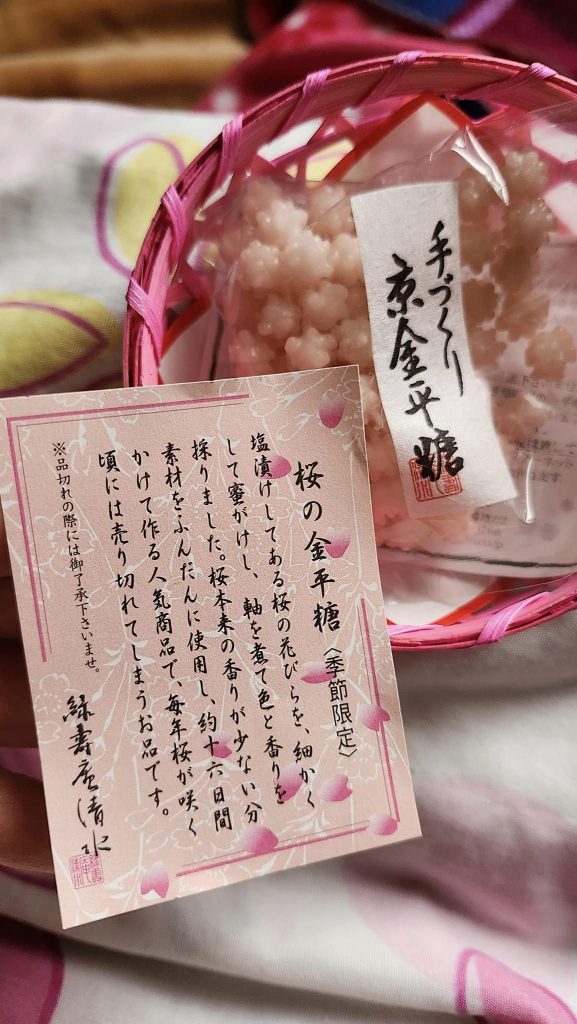 手づくり
京金平糖
桜の金平糖〈季節限定〉
塩漬けしてある桜の花びらを、細かく
して蜜がけし、軸を煮て色と香りを
採りました。桜本来の香りが少ない分
素材をふんだんに使用し、約十六日間
かけて作る人気商品で、毎年桜が咲く
頃には売り切れてしまうお品です。
※品切れの際には御了承下さいませ。
緑寿庵清水